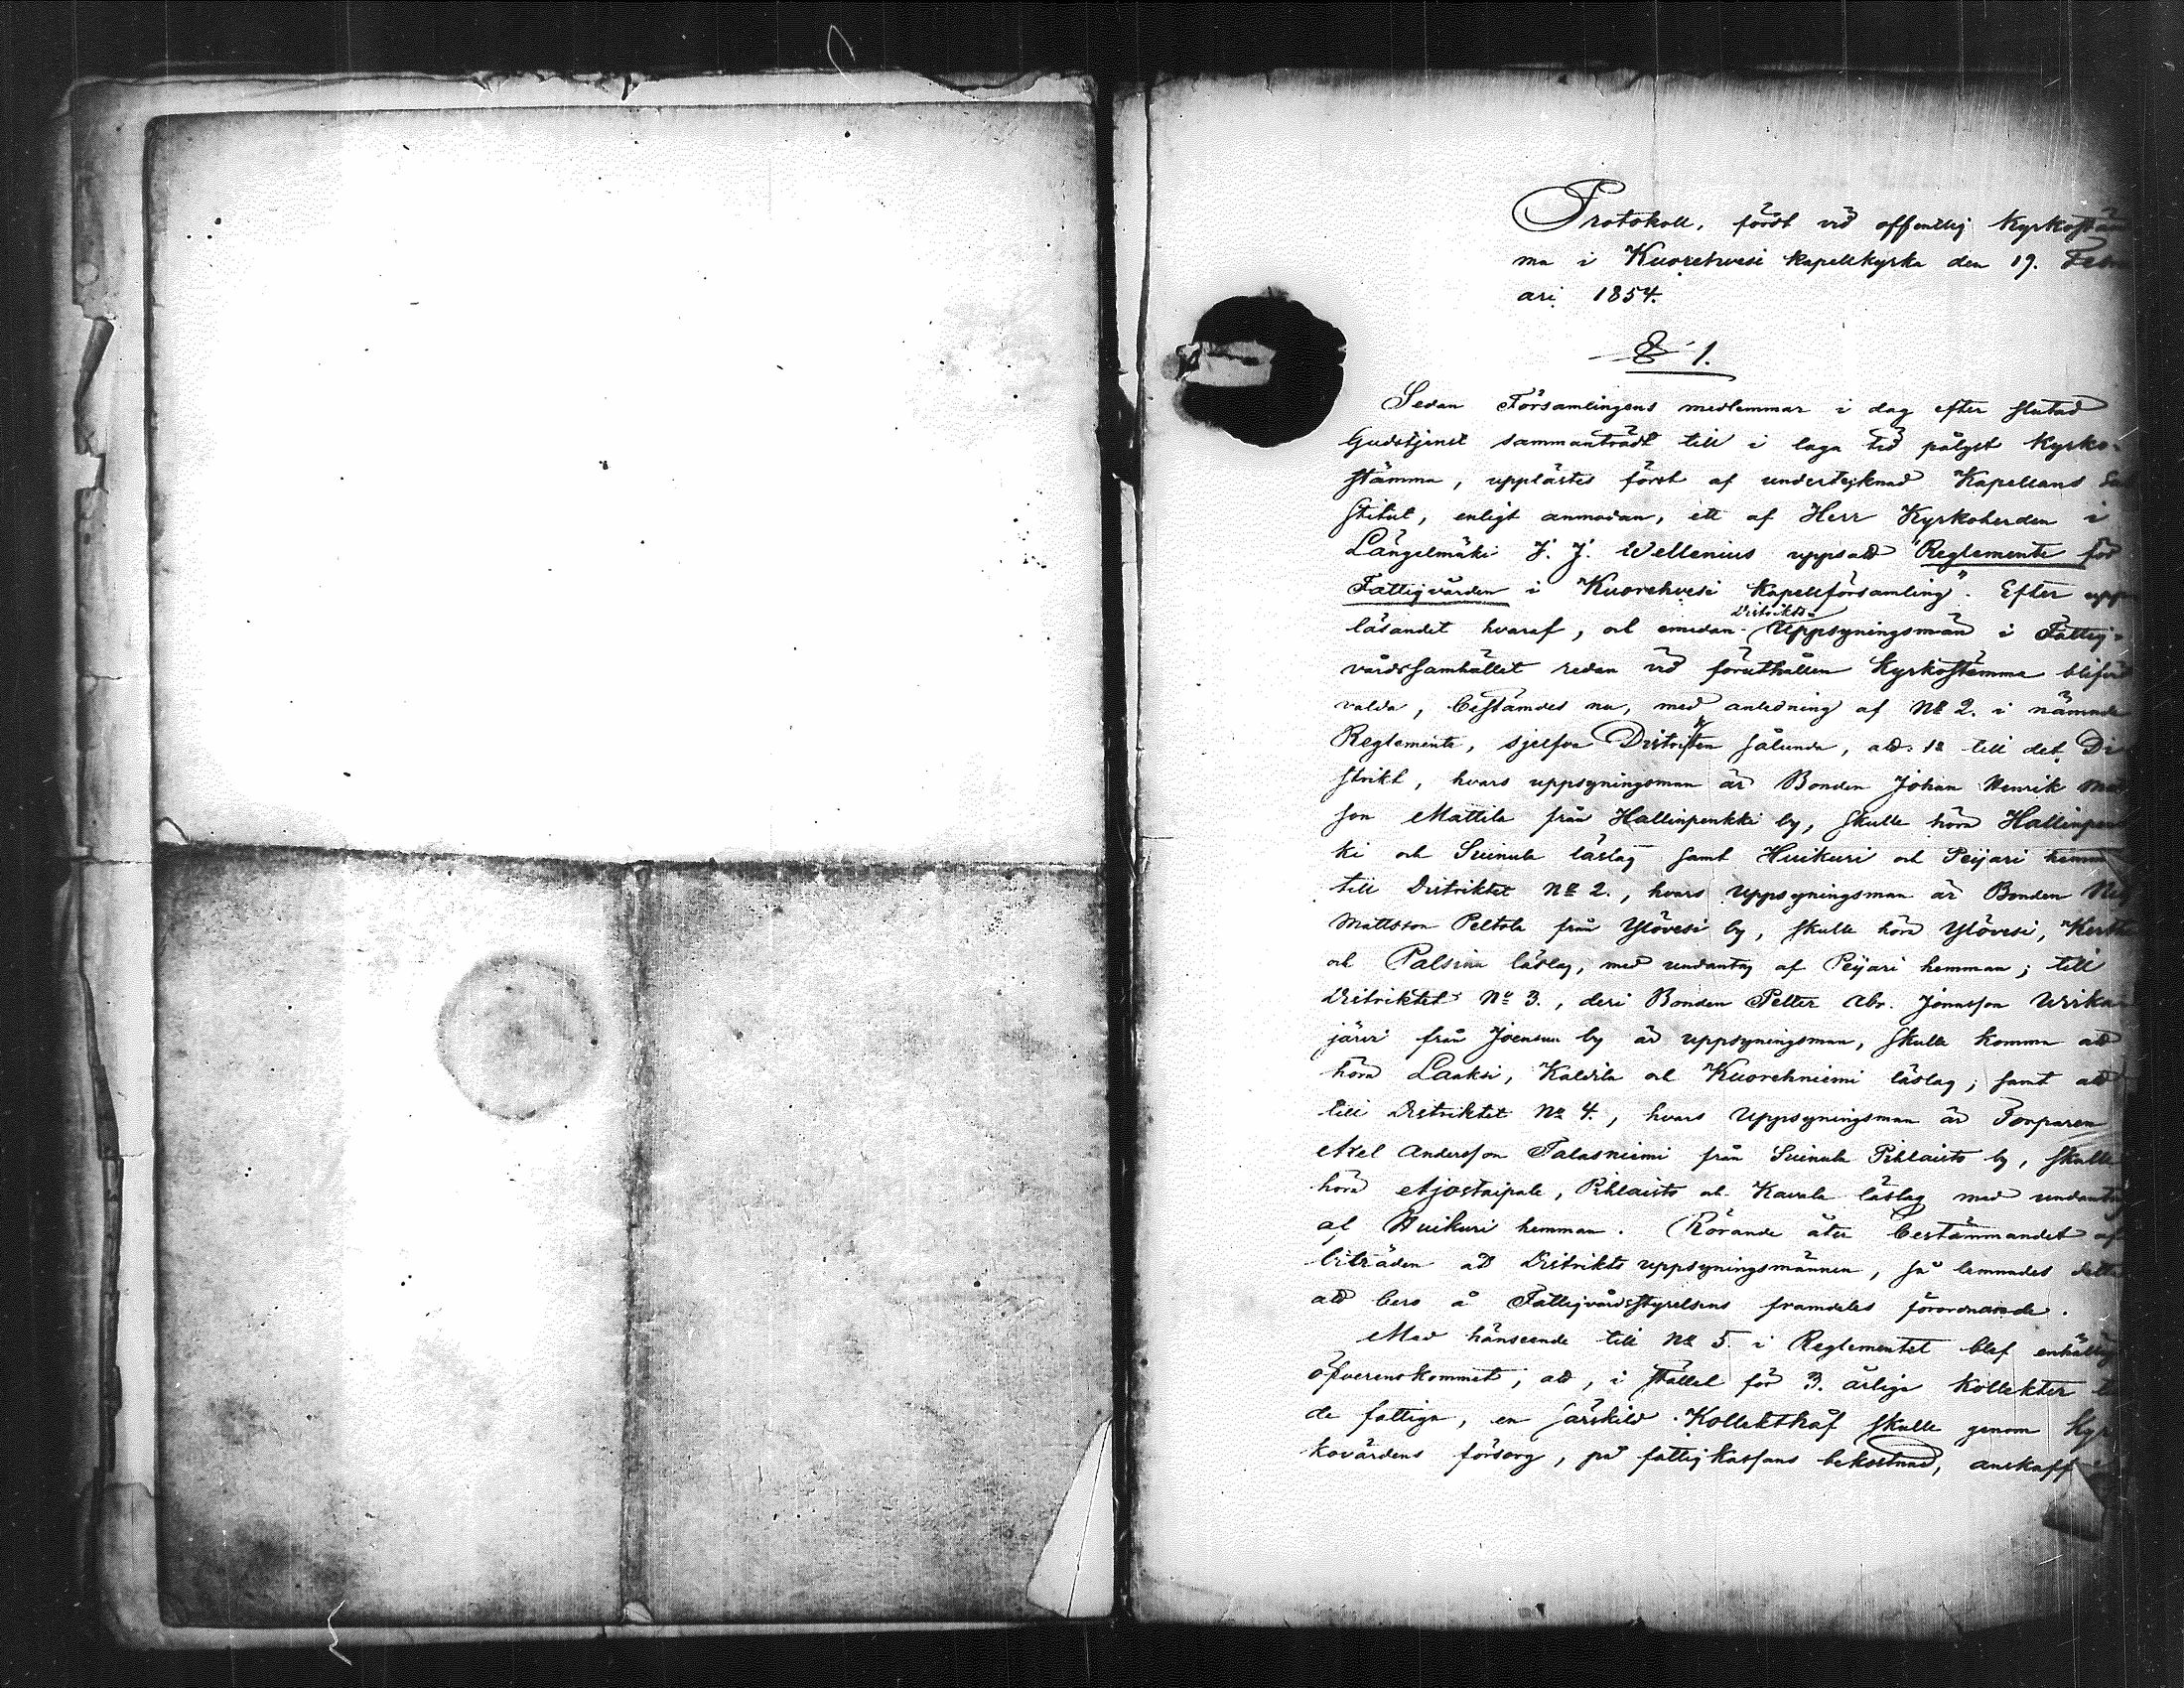 Protokoll, fördt vid offentlig Kyrkostäm
ma i Kuorehvesi kapellkyrka den 19. Febru
ari 1854.
§ 1.
Sedan Församlingens medlemmar i dag efter slutad
Gudstjenst sammanträdt till i laga tid pålyst Kyrko-
stämma, upplästes först af undertejknad Kapellans Sub
stitut, enligt anmodan, ett af Herr Kyrkoherden i
Längelmäki J. J. Wellenius uppsatt "Reglemente för
Fattigvården i Kuorehvesi Kapellförsamling". Efter upp
läsandet hvaraf, och emedan Distrikts-Uppsyningsmän i Fattig-
vårdssamhället redan vid föruthållen Kyrkostämma blifvit
valda, bestämdes nu, med anledning af № 2. i nämnde
Reglemente, sjelfva Distrikten sålunda, att 1o till det Di
strikt, hvars uppsyningsman är Bonden Johan Henrik Mats
son Mattila från Hallinpenkki by, skulle höra Hallinpenk
ki och Suinula läslag samt Huikuri och Peijari hemman
till Distriktet № 2., hvars Uppsyningsman är Bonden
Mattsson Peltola från Ylövesi by, skulle höra Ylövesi,
och Palsina läslag, med undantag af Peijari hemman; till
Distriktet № 3., deri Bonden Petter Abr. Jonasson
järvi från Joensuu by är uppsyningsman, skulle komma att
höra Laaksi, Kaldila och Kuorehniemi läslag; samt att
till Distriktet № 4., hvars Uppsyningsman är Torparen
Axel Andersson Talasniemi från Suinula Pihlaisto by, skulle
höra Ajostaipale, Pihlaisto och Kavala läslag med undantag
af Huikuri hemman. Rörande åter bestämmandet af
biträden åt Distrikts uppsyningsmännen, så lemnades detta
att bero å Fattigvårdsstyrelsens framdeles förordnande.
Med hänseende till № 5. i Reglementet blef enhälligt
öfverenskommet, att, i stället för 3. årliga Kollekter
de fattiga, en särskild Kollekthåf skulle genom Kyr
kovärdens försorg, på fattigkassans bekostnad, anskaff